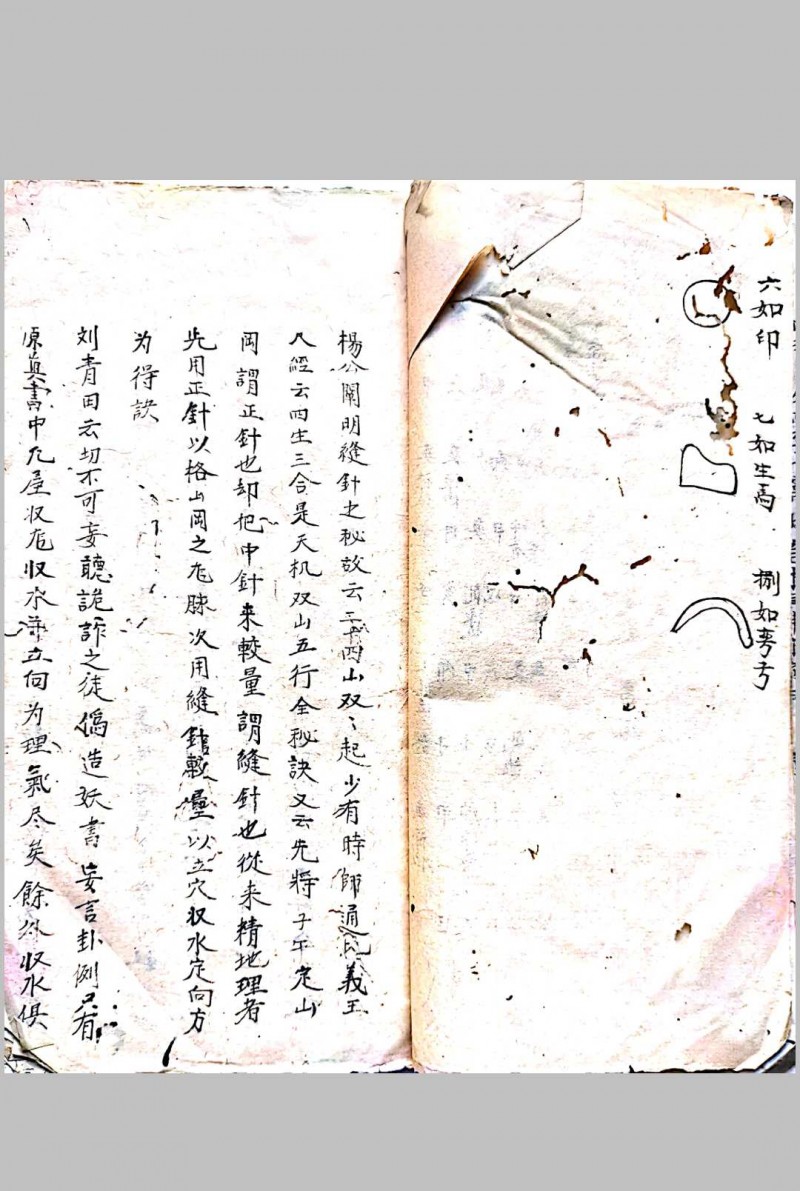 六如印
七如生馬
捌如弯弓
楊公闡明縫針之秘故云二十四山双〻起少有時師通此義玉
尺經云四生三合是天机双山五行全秘訣又云先將子午定山
岡謂正針也却把中針来較量謂縫針也從来精地理者
先用正針以格山岡之龙脉次用縫針較量以立穴収水定向方
为得訣
刘青田云切不可妄聽詭詐之徒偽造妖書妄言卦例只有
原真書中凡屋収龙収水立向为理氣尽矣餘外収水俱